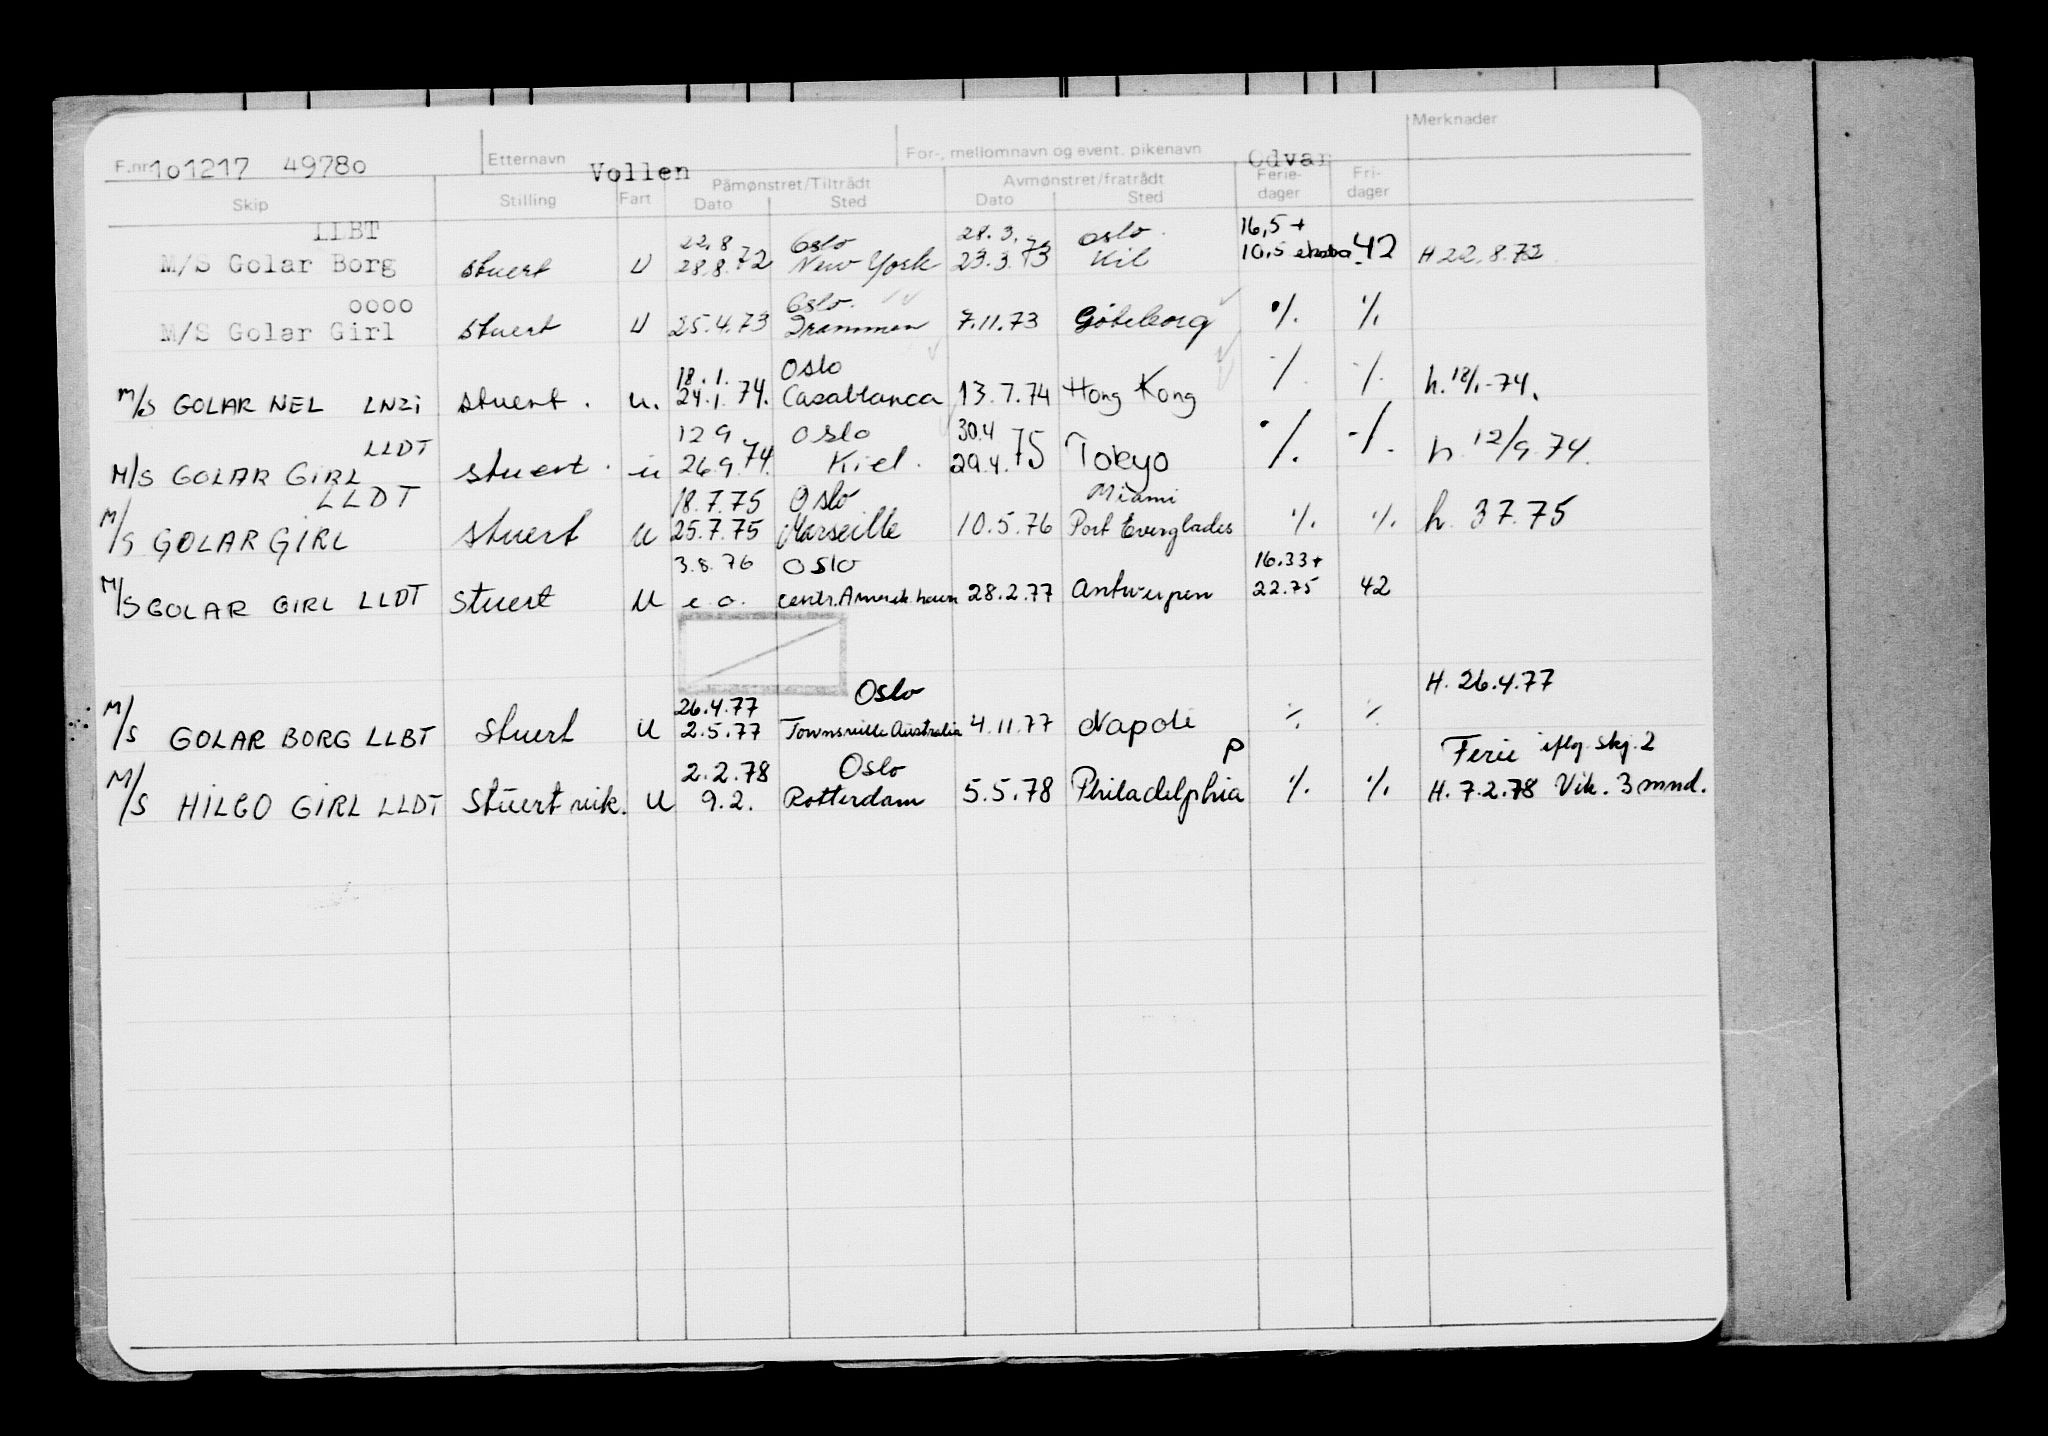 F.nr. 1o1217 4978o Etternavn Vollen For-, mellomnavn og event. pikenavn Odvar Merknader
Skip Stilling Fart Påmønstret/Tiltrådt Avmønstret/fratrådt Ferie- Fri-
Dato Sted Dato Sted dager dager
LLBT 22.8 Oslo 28.3. Oslo. 16,5 +
M/S Golar Borg stuert U 28.8.72 New York 23.3.73 Kil 10,5 42 H 22.8.72.
oooo Oslo.
M/S Golar Girl stuert U 25.4.73 Drammen 7.11.73 Göteborg % %
18.1. Oslo
M/S GOLAR NEL LNZi stuert. u. 24.1.74. Casablanca 13.7.74 Hong Kong % % h. 18/1-74.
LLDT 12 9 Oslo 30.4
M/S GOLAR GIRL stuert. u 26.9.74. Kiel. 29.4.75 Tokyo % % h. 12/9 74.
LLDT 18.7.75 Oslo Miami
M/S GOLAR GIRL stuert U 25.7.75 Marseille 10.5.76 Port Everglades % % h. 37.75
3.8.76 Oslo 16.33+
M/S GOLAR GIRL LLDT stuert U e.o. centr.Amerik.havn 28.2.77 Antwerpen 22.75 42
Oslo H. 26.4.77
26.4.77
M/S GOLAR BORG LLBT stuert U 2.5.77 Townsville Australia 4.11.77 Napoli % %
P Ferie iflg. skj. 2
2.2.78 Oslo
M/S HILCO GIRL LLDT stuert vik. U 9.2. Rotterdam 5.5.78 Philadelphia % % H. 7.2.78 Vik. 3 mnd.